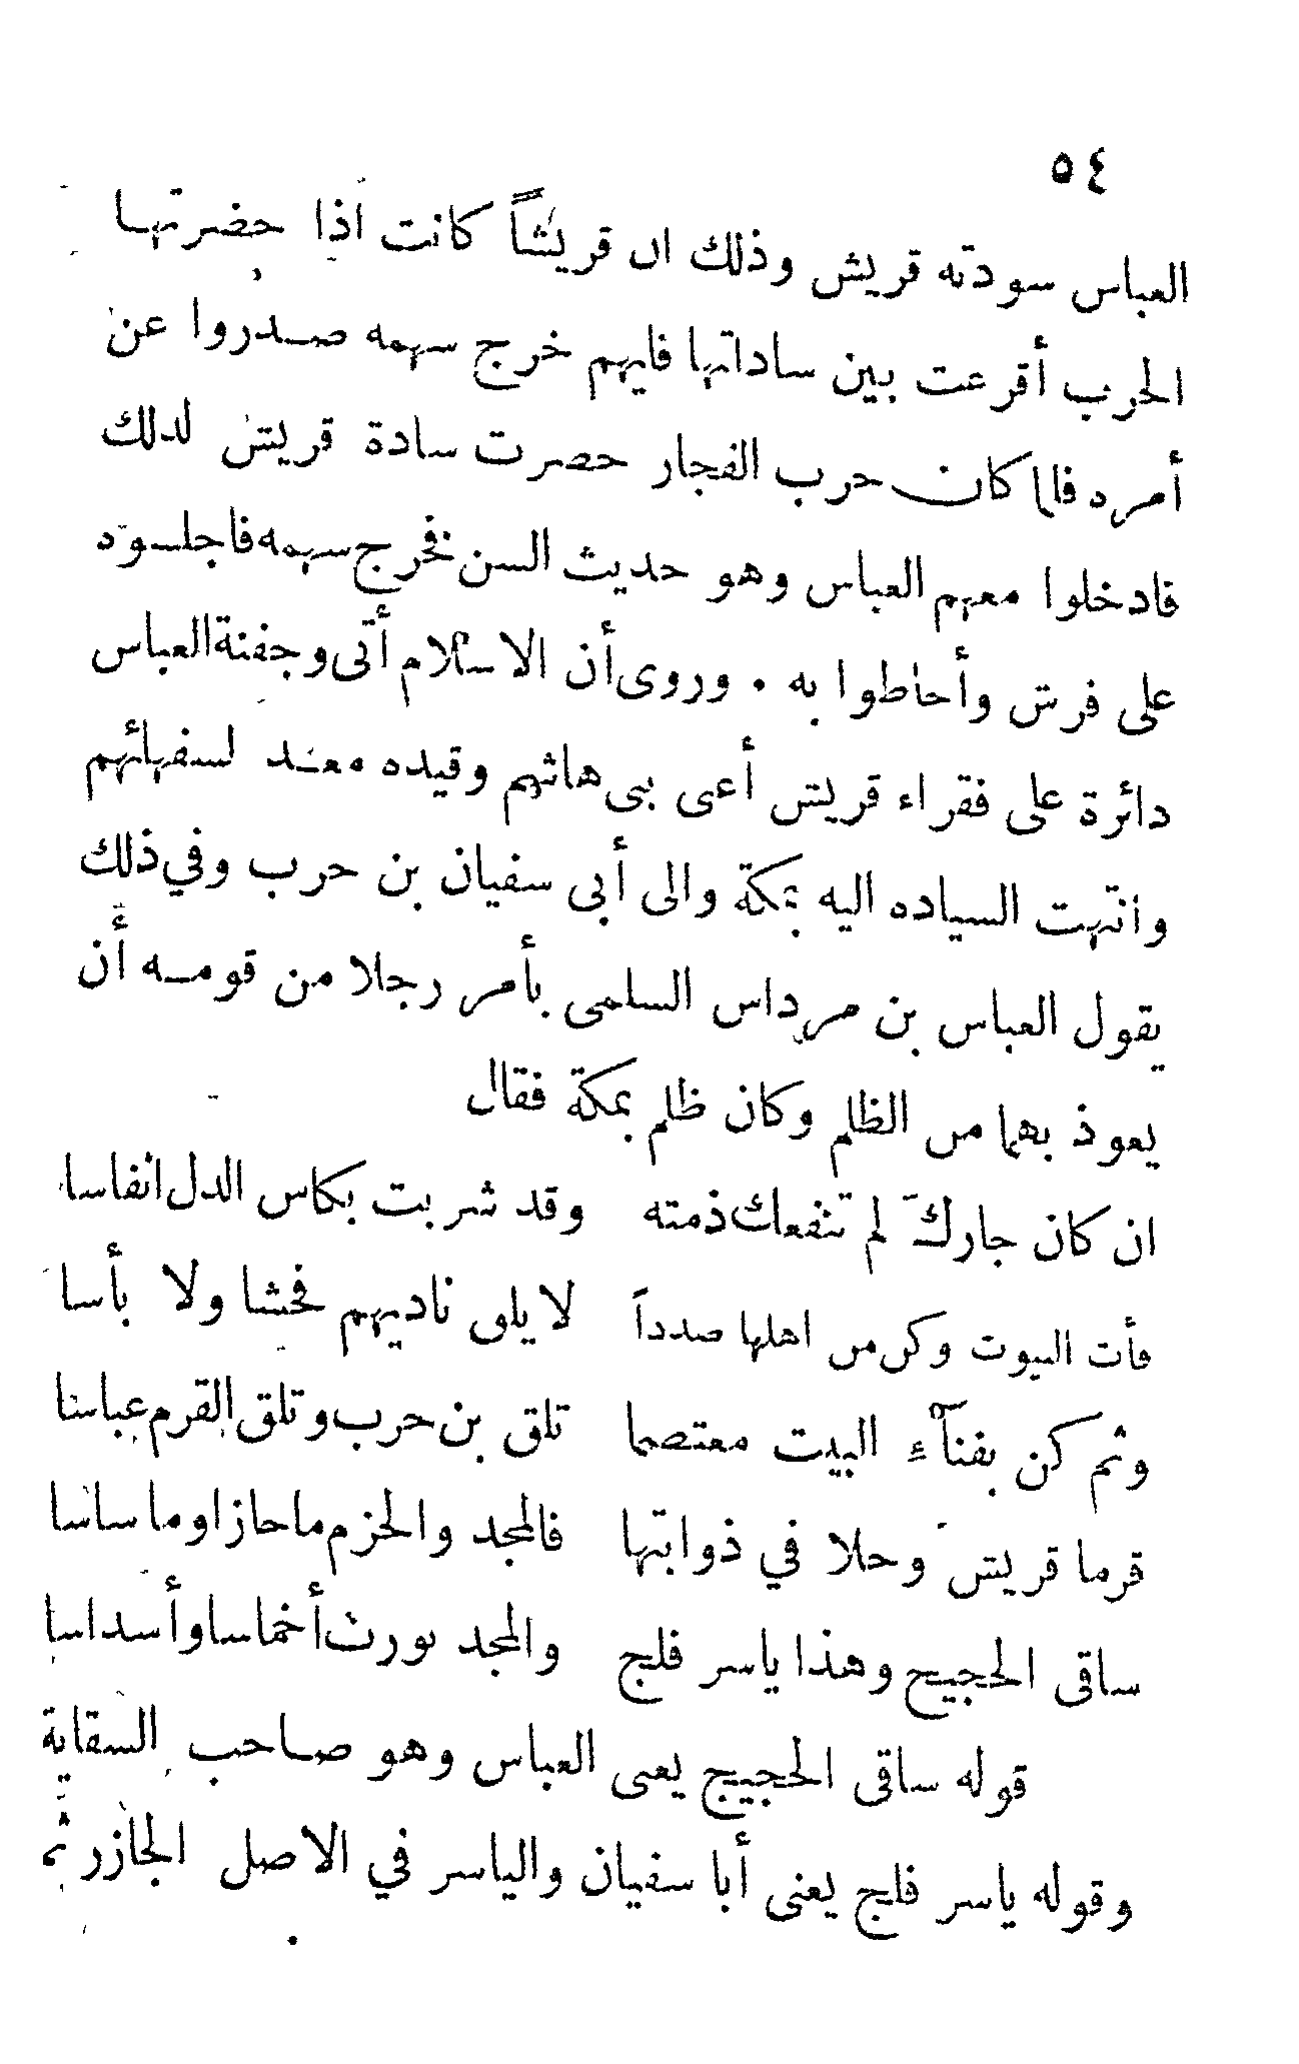 ٥٤
العباس سودته قريش وذلك ان قريشاً كانت اذا حضرتها
الحرب أقرعت بين ساداتها فايهم خرج سهمه صدروا عن
أمره فلما كان حرب الفجار حضرت سادة قريش لذلك
فادخلوا معهم العباس وهو حديث السن نخرج سهمه فاجلسوه
على فرش وأحاطوا به . وروى أن الاسلام أتى وجفنة العباس
دائرة على فقراء قريش أعنى بنى هاشم وقيده معند لسفهائهم
وانتهت السياده اليه بمكة والى أبى سفيان بن حرب وفي ذلك
يقول العباس بن مرداس السلمى بأمر رجلا من قومه أن
يعوذ بهما من الظلم وكان ظلم بمكة فقال
ان كان جارك لم تنفعك ذمته وقد شربت بكاس الذل انفاسا
فأت البيوت وكن من اهلها صدداً لا يلق ناديهم فحشا ولا بأسا
وثم كن بفنآء البيت معتصما تلق بن حرب وتلق القرم عباسا
قرما قريش وحلا في ذوابتها فالمجد والحزم ما حازا وما ساسا
ساقى الحجيج وهذا ياسر فلج والمجد يورث أخماسا وأسداسا
قوله ساقى الحجيج يعنى العباس وهو صاحب السقاية
وقوله ياسر فلج يعنى أبا سفيان والياسر في الاصل الجازر ثم